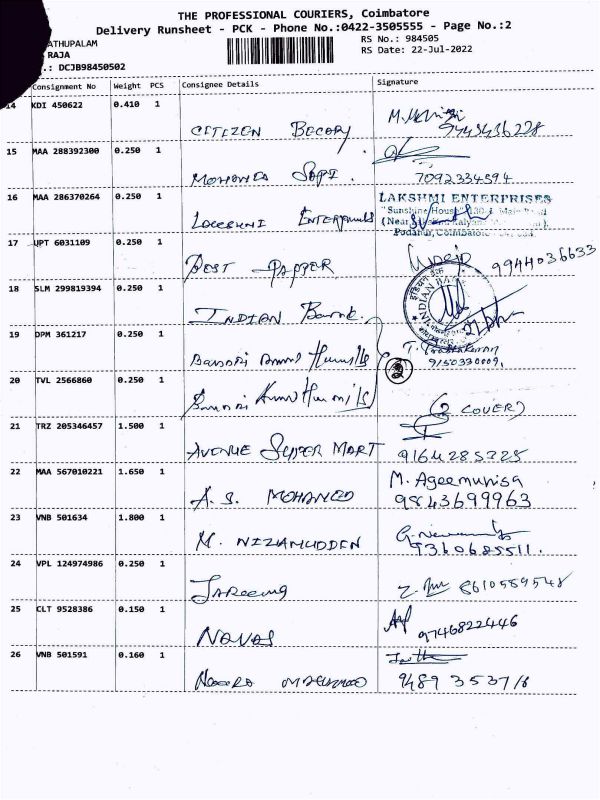 THE PROFESSIONAL COURIERS, Coimbatore
Delivery Runsheet - PCK - Phone No.:0422-3505555 - Page No.:2
ATHUPALAM
RS No.: 984505
RAJA
RS Date: 22-Jul-2022
.: DCJB98450502
Consignment No Weight PCS Consignee Details Signature
14 KDI 450622 0.410 1
CITIZEN
9443436228
15 MAA 288392300 0.250 1
7092334594
16 MAA 286370264 0.250 1
LAKSHMI ENTERPRISES
"Sunshine House"
17 UPT 6031109 0.250 1
BEST PAPPER
9944036633
18 SLM 299819394 0.250 1
INDIAN Bank
INDIAN BANK
19 DPM 361217 0.250 1
9150330009,
20 TVL 2566860 0.250 1
(2 COVER)
21 TRZ 205346457 1.500 1
AVENUE SUPER MART
9164285325
22 MAA 567010221 1.650 1
A.S. MOHAMED
M. Ageemunisa
9843699963
23 VNB 501634 1.800 1
M. NIZAMUDDEN
9360685511.
24 VPL 124974986 0.250 1
8610589548
25 CLT 9528386 0.150 1
NAVAS
9746822446
26 VNB 501591 0.160 1